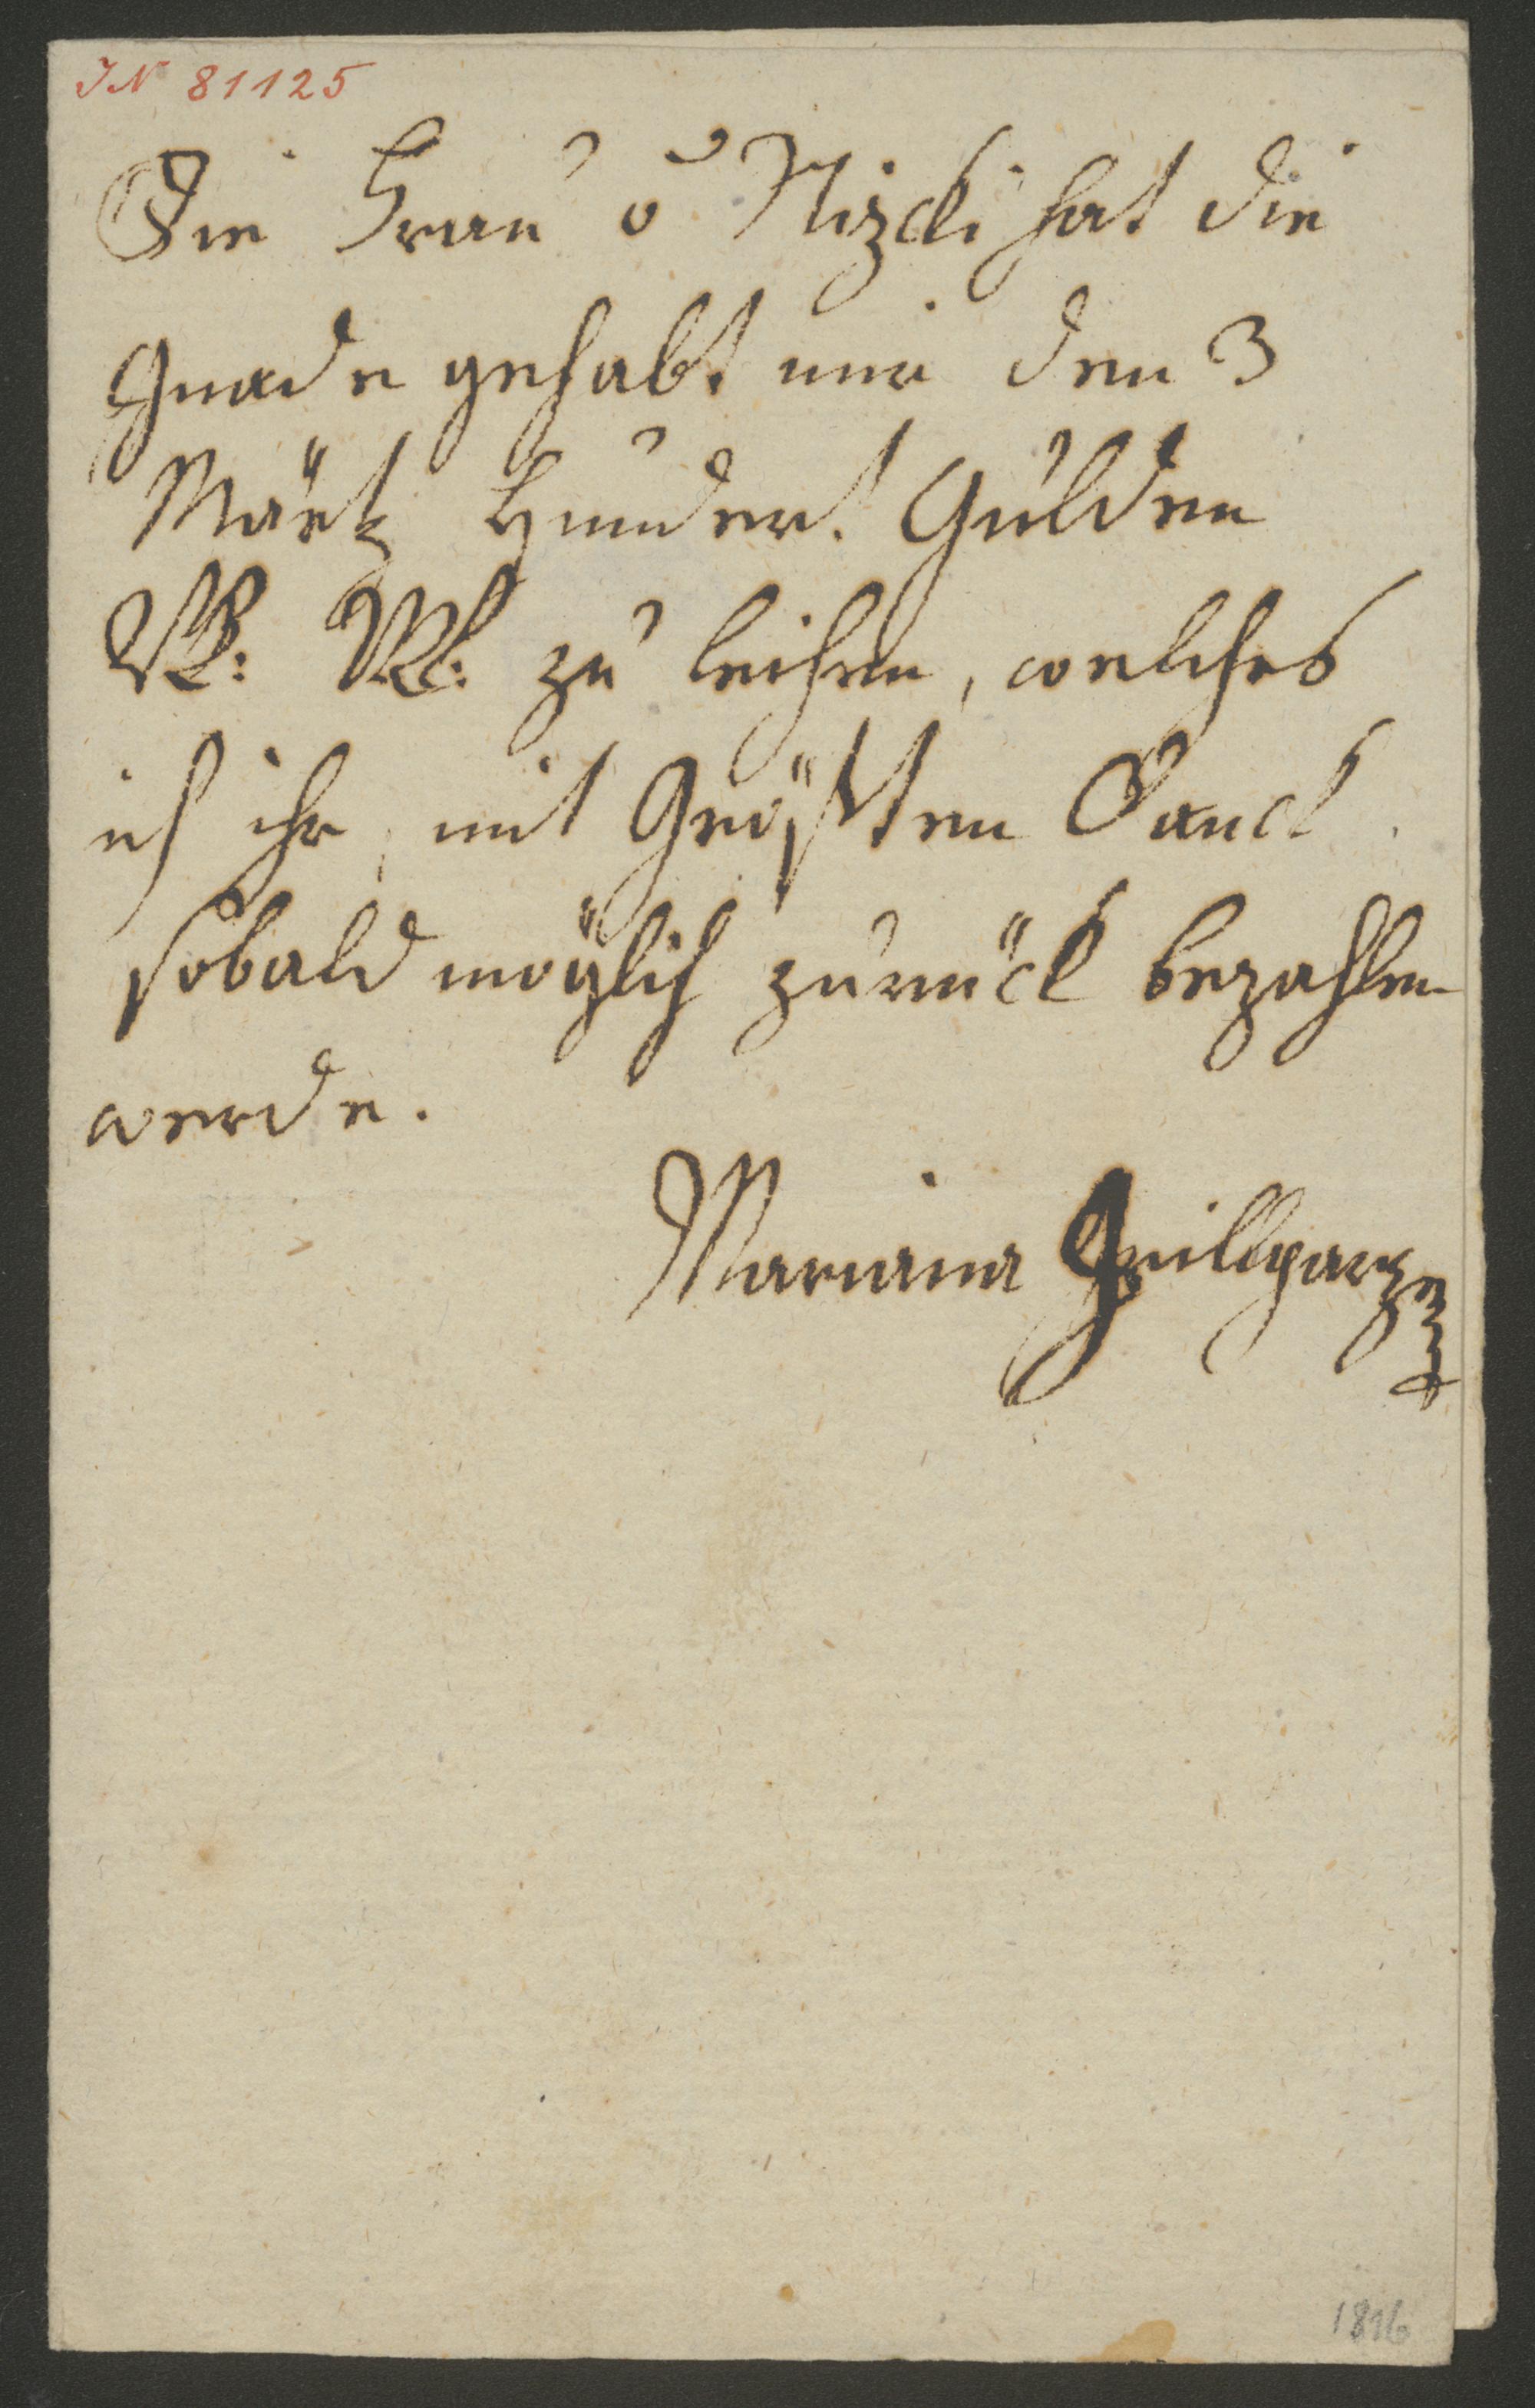 IN 81125
Die Frau v Nizcki hat die
Gnade gehabt mir den 3
Märtz Hundert Gulden
W. W. zu leihen, welches
ich ihr, mit Größten Danck
sobald möglich zurück bezahlen
werde.
Mariana Grillparzer
1816